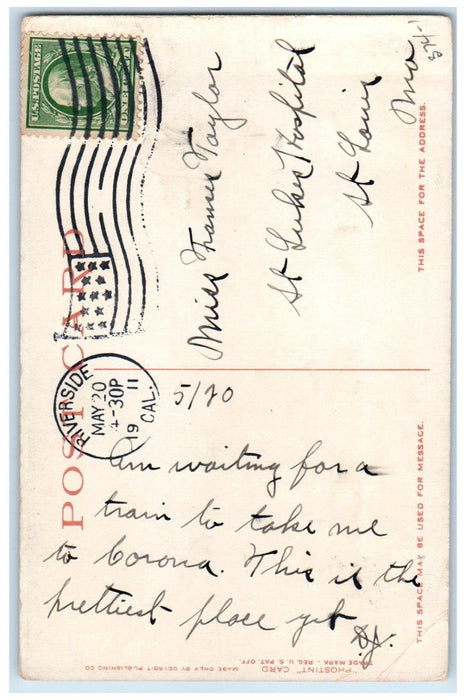 U.S. POSTAGE
ONE CENT
374-1
POST CARD
RIVERSIDE
MAY 20
4-30P
19 11
CAL.
5/20
Am waiting for a
train to take me
to Corona. This is the
prettiest place yet
Miss Frances Taylor
St Lukes Hospital
St Louis
Mo
THIS SPACE FOR THE ADDRESS.
THIS SPACE MAY BE USED FOR MESSAGE.
"PHOSTINT" CARD
TRADE MARK - REG. U.S. PAT. OFF.
MADE ONLY BY DETROIT PUBLISHING CO